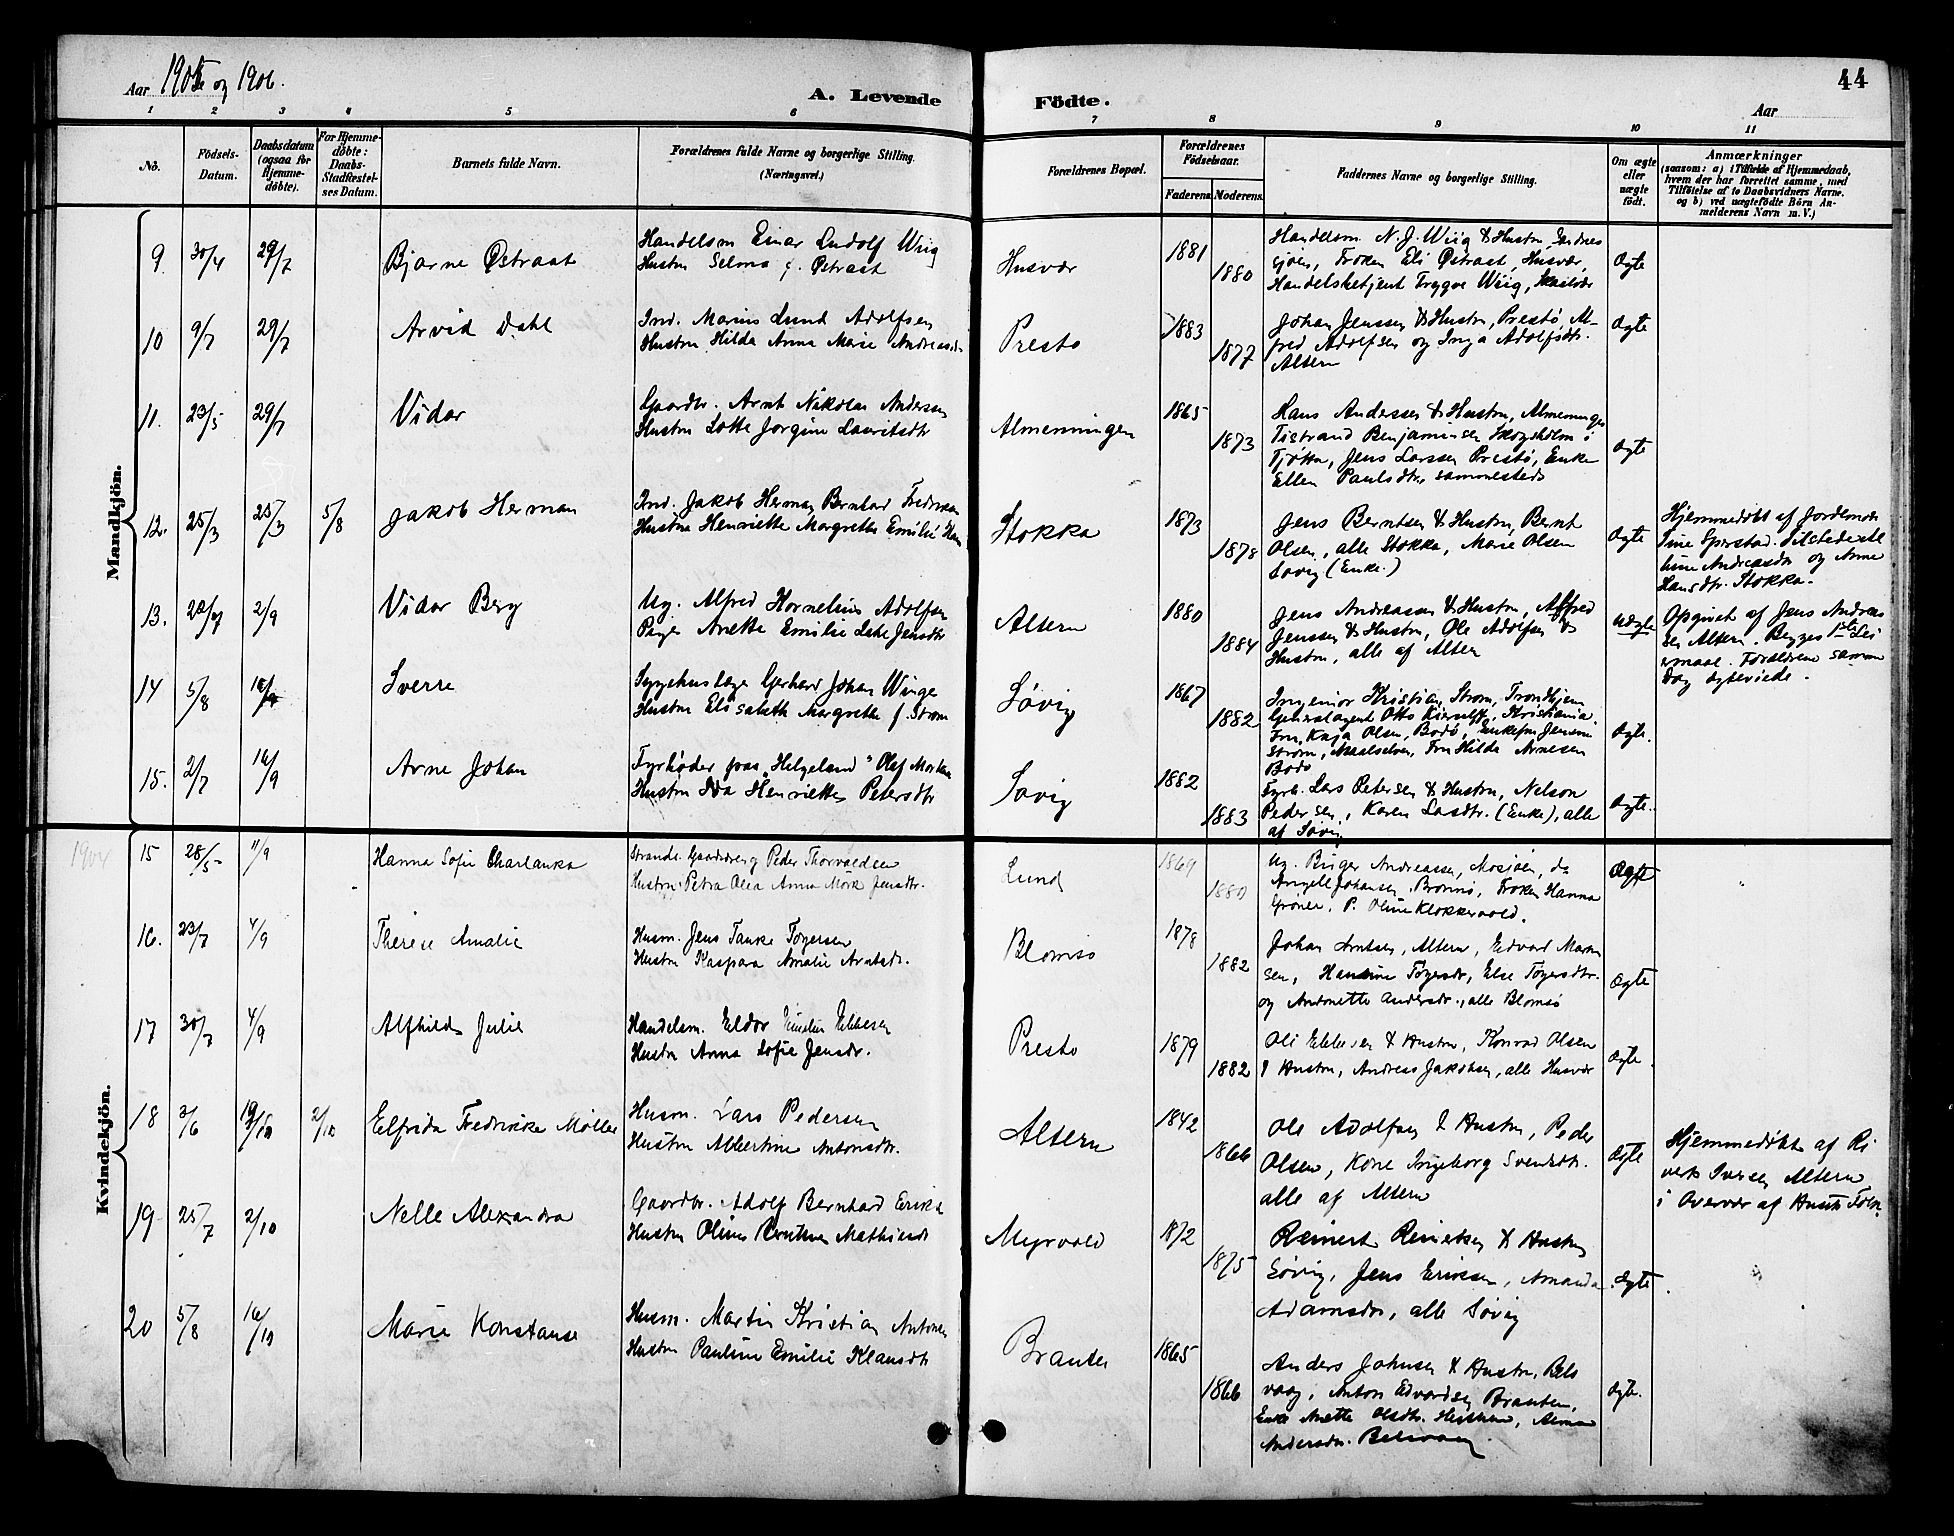 Aar 1905 og 1906.
A. Levende
Födte.
Aar
44
1 2 3 4 5 6 7 8 9 10 11
No.
Födsels-Datum.
Daabsdatum (ogsaa for Hjemme-döbte).
For Hjemme-döbte: Daabs-Stadfæstel-ses Datum.
Barnets fulde Navn.
Forældrenes fulde Navne og borgerlige Stilling. (Næringsvei.)
Forældrenes Bopæl.
Forældrenes Födselsaar.
Faderens. Moderens.
Faddernes Navne og borgerlige Stilling.
Om ægte eller uægte födt.
Anmærkninger (saasom: a) i Tilfælde af Hjemmedaab, hvem der har forrettet samme, med Tilföielse af to Daabsvidners Navne, og b) ved uægtefödte Börn An-melderens Navn m. V.)
Mandkjön.
9. 30/4 29/7 Bjarne Østraat
Handelsm Einar Ludolf Wiig
Hustru Selma f. Østraat
Husvær 1881 1880
Handelsm. N. J. Wiig & Hustru, Sandnes
sjøen, Frøken Eli Østraat, Husvær,
Handelsbetjent Trygve Wiig,
Ægte
10 9/7 29/7 Arvid Dahl
Ind. Marius Lund Adolfsen
Hustru Hilda Anna Marie Andreasdr
Prestø 1883 1877
Johan Jenssen & Hustru, Prestø, Al-
fred Adolfsen og Inga Adolfsdtr.
Altern
Ægte
11. 23/5 29/7 Vidar
Gaardbr. Arnt Nikolai Andersen
Hustru Lotte Jørgine Lauritsdtr
Almenningen 1865 1873
Hans Anderssen & Hustru, Almenningen
Tistrand Benjaminsen Skogsholm i
Tjøtta, Jens Larssen Prestø, Enke
Ellen Paulsdtr, sammesteds
Ægte
12. 25/3 25/3 5/8 Jakob Herman
Ind. Jakob Herman Bernhard Fredriksen
Hustru Henriette Margrethe Emilie
Stokka 1873 1878
Jens Berntsen & Hustru, Bernt
Olsen, alle Stokka, Marie Olsen
Søvig (Enke.)
Ægte
Hjemmedøbt af Jordemoder
Sine
Andreasdr og Anne
Hansdtr. Stokka.
13. 2/9 Vidar Berg
Ug. Alfred Kornelius Adolfsen
Pige Anette Emilie Jensdtr
Altern 1880 1884
Jens Andreassen & Hustru, Alfred
Jenssen & Hustru, Ole Adolfsen &
Hustru, alle af Altern
Uægte
Opgivet af Jens Andreas
sen Altern. Begges 1ste Lei
ermaal. Forældrene samme
Dag ægteviede.
14 5/8 Sverre
Sygehuslæge Gerhard Johan Winge
Hustru Elisabeth Margrethe f. Strøm
Søvig 1867 1882
Ingeniør Kristian Strøm, Trondhjem
Generalagent Otto Kierulff, Kristiania.
Fru Kaja Olsen, Bodø, Enkefru Jensine
Strøm, Maalselven, Fru Hilda Arnesen
Bodø
Ægte.
15. 2/7 16/9 Arne Johan
Fyrbøder paa „Helgeland" Olaf
Hustru Ida Henriette Petersdtr
Søvig 1882 1883
Fyrb. Lars Petersen & Hustru, Nelson
Pedersen, Karen Larsdtr. (Enke), alle
af Søvig
Ægte.
Kvindekjön.
1904 15 28/5 11/9 Hanna Sofie Charlanka
Strands. Peder Thorvaldsen
Hustru: Petra Olea Anna Mørk Jensdtr.
Lund 1869 1880
Ug. Birger Andreassen, Mosjøen, do
Johansen, Brønnø, Frøken Hanna
Grøner, P. Oline Klokkervold.
Ægte
16. 23/7 4/9 Therese Amalie
Husm. Jens Tanke Tøgersen
Hustru Kaspara Amalie Arntsdr.
Blomsø 1878 1882
Johan Arntsen, Altern, Edvard
sen, Hansine Tøgersdr, Else Tøgersdtr.
og Antonette Andersdr., alle Blomsø
Ægte
17 30/7 4/9 Alfhild Julie
Handelsm. Eldor Ebbesen
Hustru Anna Sofie Jensdr.
Prestø 1879 1882
Oli Ebbesen & Hustru, Konrad Olsen
& Hustru, Andreas Jakobsen, alle Husvær
Ægte
18 3/6 19/10 2/10 Elfrida Fredrikke Møller
Husm. Lars Pedersen
Hustru Albertine Antonsdtr.
Altern 1842 1866
Ole Adolfsen & Hustru, Peder
Olsen, Kone Ingeborg Svendsdtr.
alle af Altern
Ægte
Hjemmedøbt af
Iversen Altern
i Overvær af
19 25/7 2/10 Nelle Alexandra
Gaardbr. Adolf Bernhard Eriksen
Hustru Oline Mathisdtr
Myrvold 1872 1875
Reinert Reinertsen & Hustru
Søvig, Jens Eriksen, Amanda
Adamsdr, alle Søvig
Ægte
20 5/8 16/10 Marie Konstanse
Husm. Martin Kristian Antonsen
Hustru Pauline Emilie Klausdtr
Branten 1865 1866
Anders Johnsen & Hustru, Bels
vaag, Anton Edvardsen Branten,
Enke Anette Olsdtr.
Andersdr. Belsvaag
Ægte.